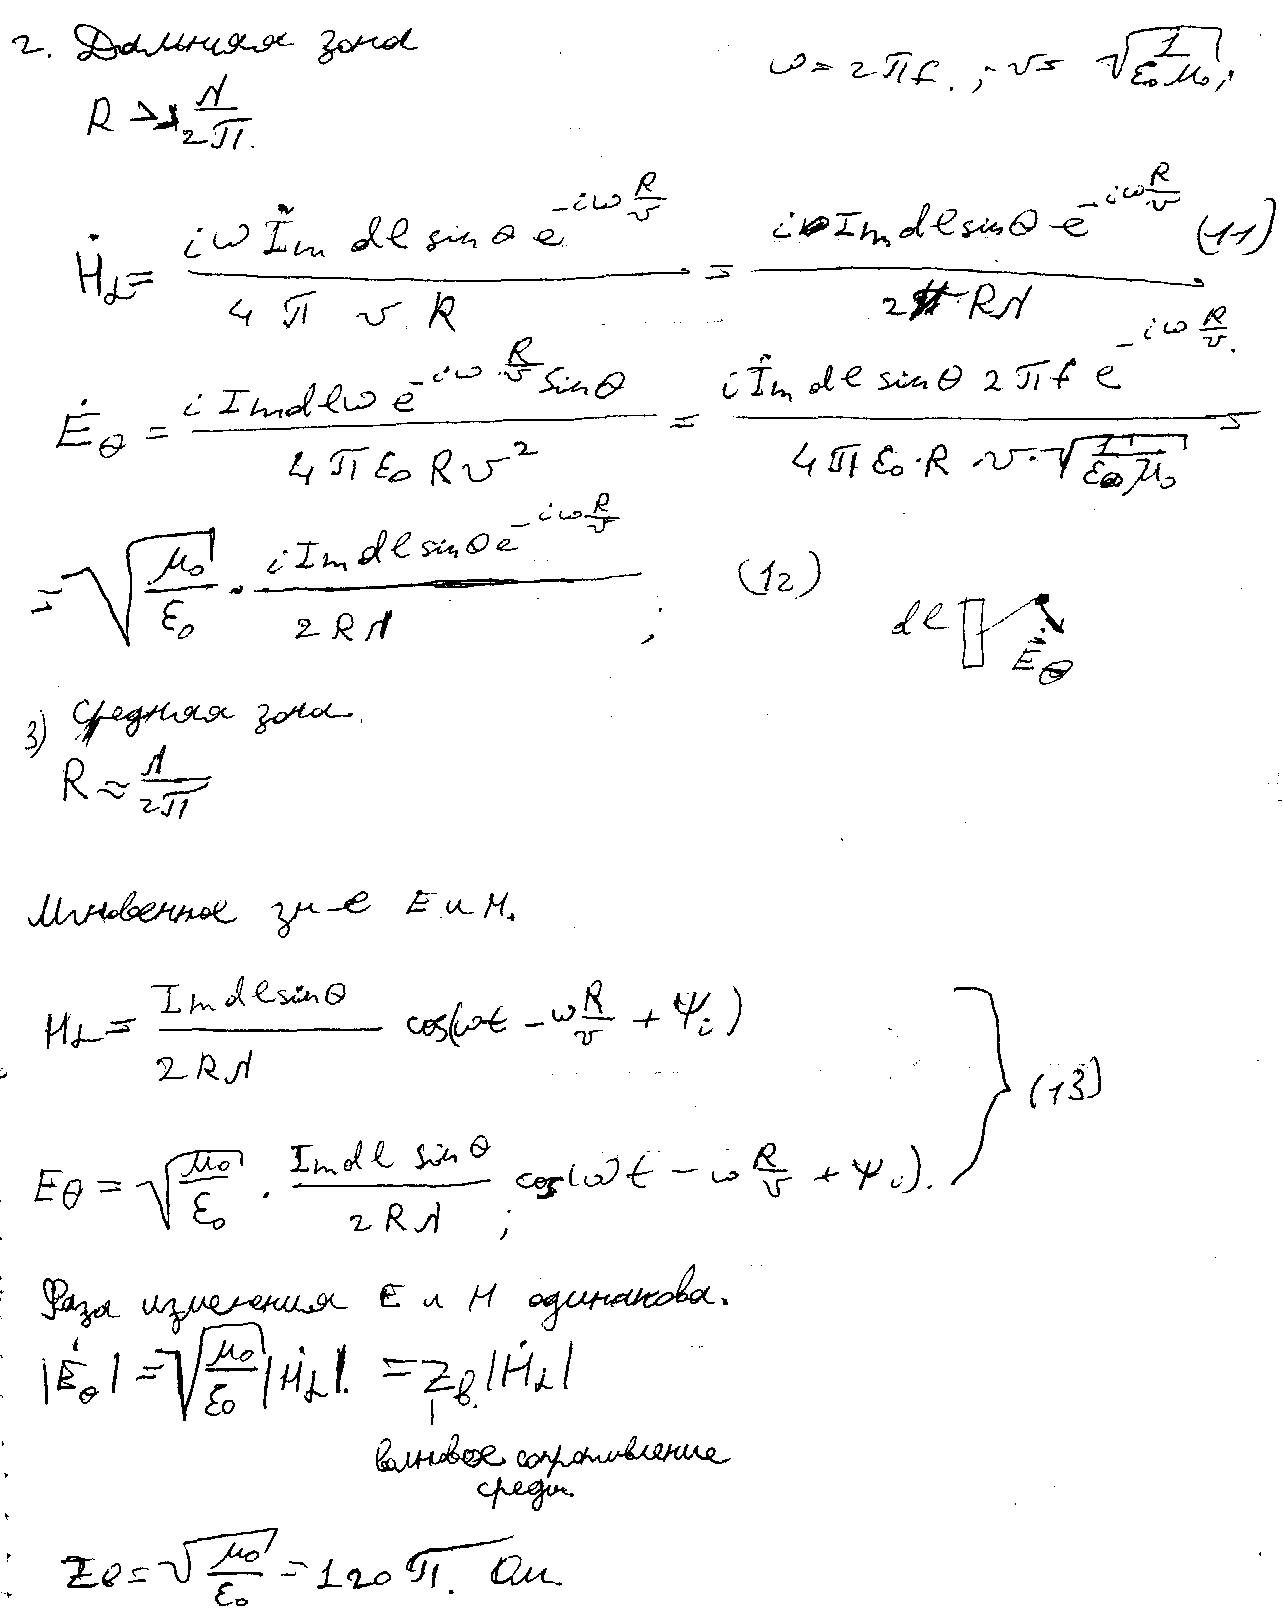 2. Дальняя зона
ω = 2πf.; v = √(1/(ε₀μ₀));
R >> λ/2π.
Ḣ_α = (iω İm dl sinθ e^(-iω R/v))/(4π v R) = (i Im dl sinθ e^(-iω R/v))/(2 Rλ) (11)
Ė_θ = (i Im dl ω e^(-iω R/v) sinθ)/(4π ε₀ R v²) = (i İm dl sinθ 2πf e^(-iω R/v))/(4π ε₀·R v·√(1/(ε₀μ₀))) =
= √(μ₀/ε₀) · (i Im dl sinθ e^(-iω R/v))/(2Rλ); (12)
dl Ė_θ
3) Средняя зона.
R ≈ λ/2π
Мгновенное зн-е E и H.
H_α = (Im dl sinθ)/(2Rλ) cos(ωt - ω R/v + Ψi)
(13)
E_θ = √(μ₀/ε₀) · (Im dl sinθ)/(2Rλ); cos(ωt - ω R/v + Ψi).
Фаза изменения E и H одинакова.
|Ė_θ| = √(μ₀/ε₀) |Ḣ_α|. = Z_в.|Ḣ_α|
волновое сопротивление
среды.
Zв = √(μ₀/ε₀) = 120π. Ом.